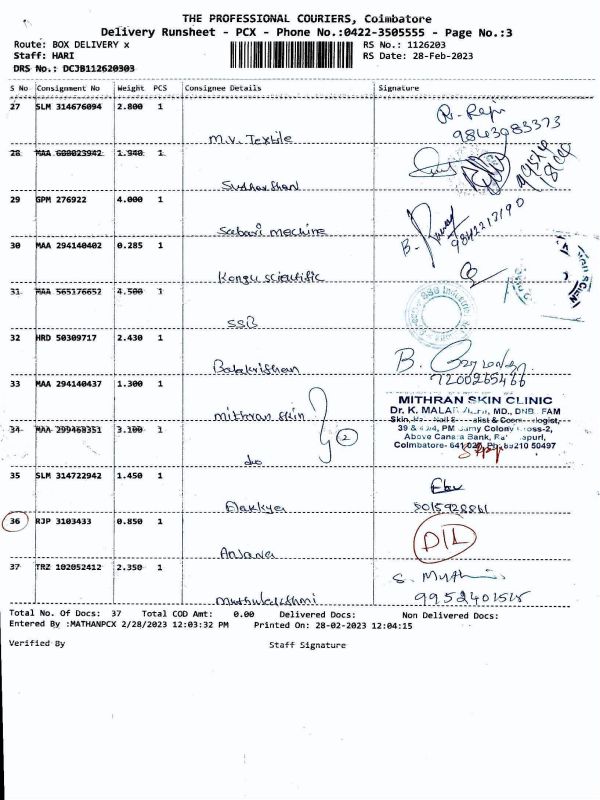 THE PROFESSIONAL COURIERS, Coimbatore
Delivery Runsheet - PCX - Phone No.:0422-3505555 - Page No.:3
Route: BOX DELIVERY x RS No.: 1126203
Staff: HARI RS Date: 28-Feb-2023
DRS No.: DCJB112620303
S No Consignment No Weight PCS Consignee Details Signature
27 SLM 314676094 2.800 1
M.V. Textile 9843983373
28 MAA 600023942 1.940 1
Sudharshan
29 GPM 276922 4.000 1
Sabari mechine 9842217190
30 MAA 294140402 0.285 1
Kongu scientific
31 MAA 565176652 4.500 1
SSB
32 HRD 50309717 2.430 1
Balakrishnan 7200265466
33 MAA 294140437 1.300 1
mithran skin
MITHRAN SKIN CLINIC
Dr. K. MALAR MD., DNB. FAM
34 MAA 299468351 3.100 1
39 & PM Colony Cross-2,
Above Canara Bank,
Coimbatore- 641 027, Ph: 89210 50497
do 2
35 SLM 314722942 1.450 1
Elakkya 8015928861
36 RJP 3103433 0.850 1
Anjana D/L
37 TRZ 102052412 2.350 1
Muthulakshmi 9952401515
Total No. Of Docs: 37 Total COD Amt: 0.00 Delivered Docs: Non Delivered Docs:
Entered By :MATHANPCX 2/28/2023 12:03:32 PM Printed On: 28-02-2023 12:04:15
Verified By Staff Signature